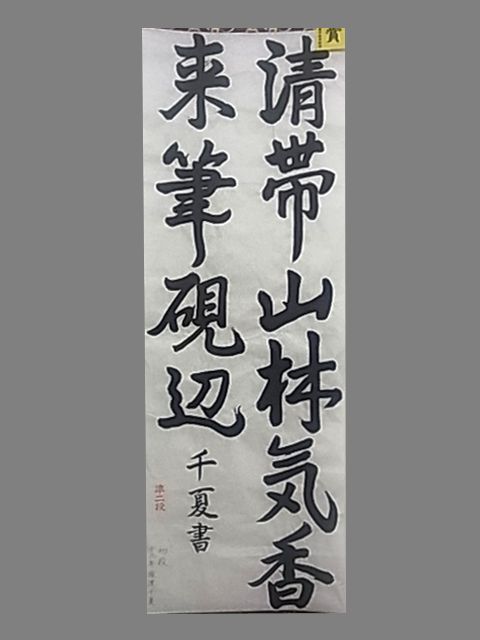 賞
清帯山林気香
来筆硯辺
千夏書
準二段
初段